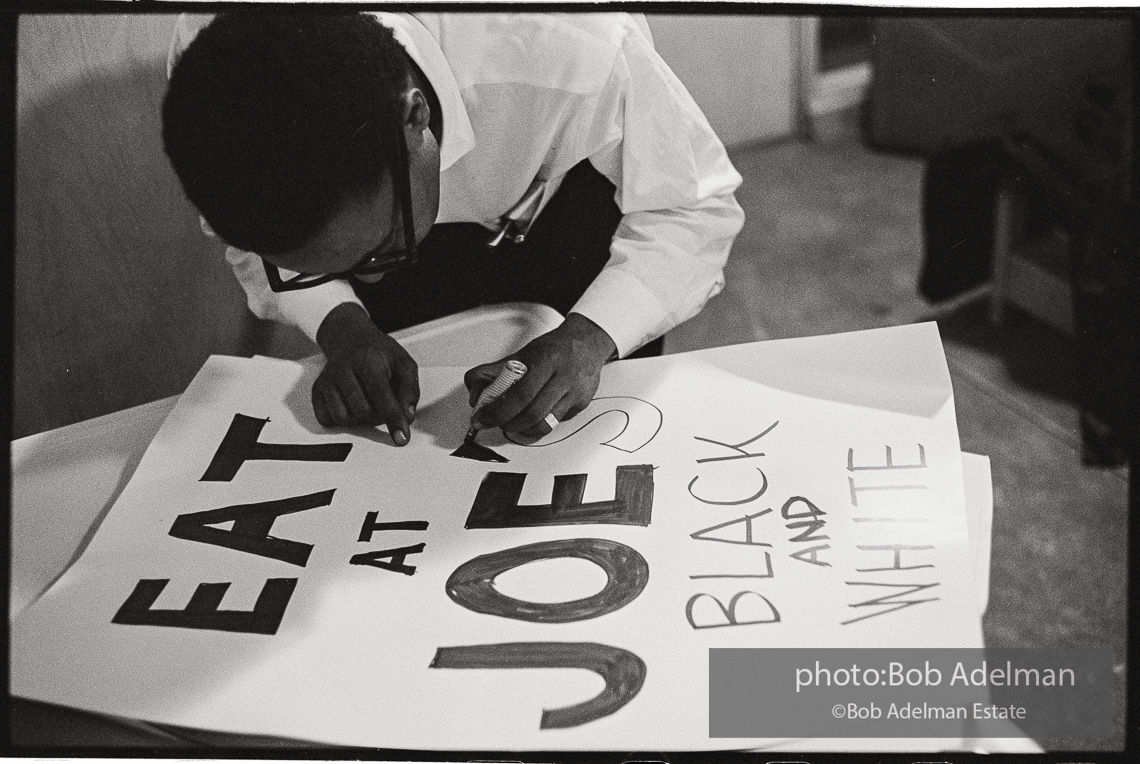 EAT
AT
JOE'S
BLACK
AND
WHITE
photo:Bob Adelman
©Bob Adelman Estate